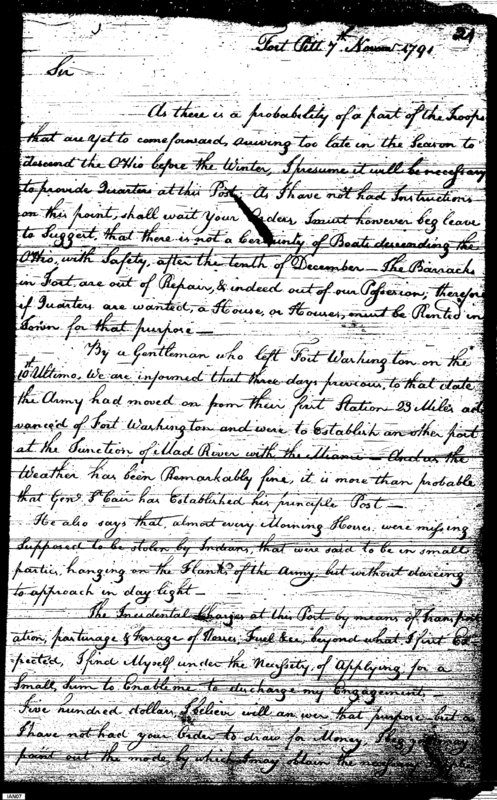 21
Fort Pitt 7th Novem 1791
Sir
As there is a probability of a part of the Troops
that are yet to come forward, arriving too late in the Season to
descend the Ohio before the Winter, I presume it will be necessary
to provide Quarters at this Post. As I have not had Instructions
on this point, shall wait Your Orders I must however beg leave
to Suggest, that there is not a Certainty of Boats descending the
Ohio, with Safety, after the tenth of December — The Barracks
in Fort, are out of Repair, & indeed out of our Possession, therefore
if Quarters are wanted, a House, or Houses, must be Rented in
Town for that purpose —
By a Gentleman who left Fort Washington on the
10th Ultimo, We are informed that three days previous, to that date
the Army had moved on from their first Station 23 Miles ad
vanced of Fort Washington and were to Establish an other post
at the Junction of Mad River with the Miamie — And as the
Weather has been Remarkably fine, it is more than probable
that Genl. St Clair has Established his principle Post —
He also says that, almost every Morning Horses, were missing
Supposed to be stolen by Indians, that were said to be in small
parties, hanging on the Flanks of the Army, but without daring
to approach in day light —
The Incidental Charges at this Post by means of Transport
ation, pasturage & Forage of Horses, Fuel &c, beyond what I first Ex
pected, I find Myself under the Necessity, of Applying for a
Small, Sum to Enable me to discharge my Engagement, —
five hundred dollars, I believe will answer that purpose but as
I have not had your Order to draw for Money,
point out the mode by which I may obtain the necessary
IAN07